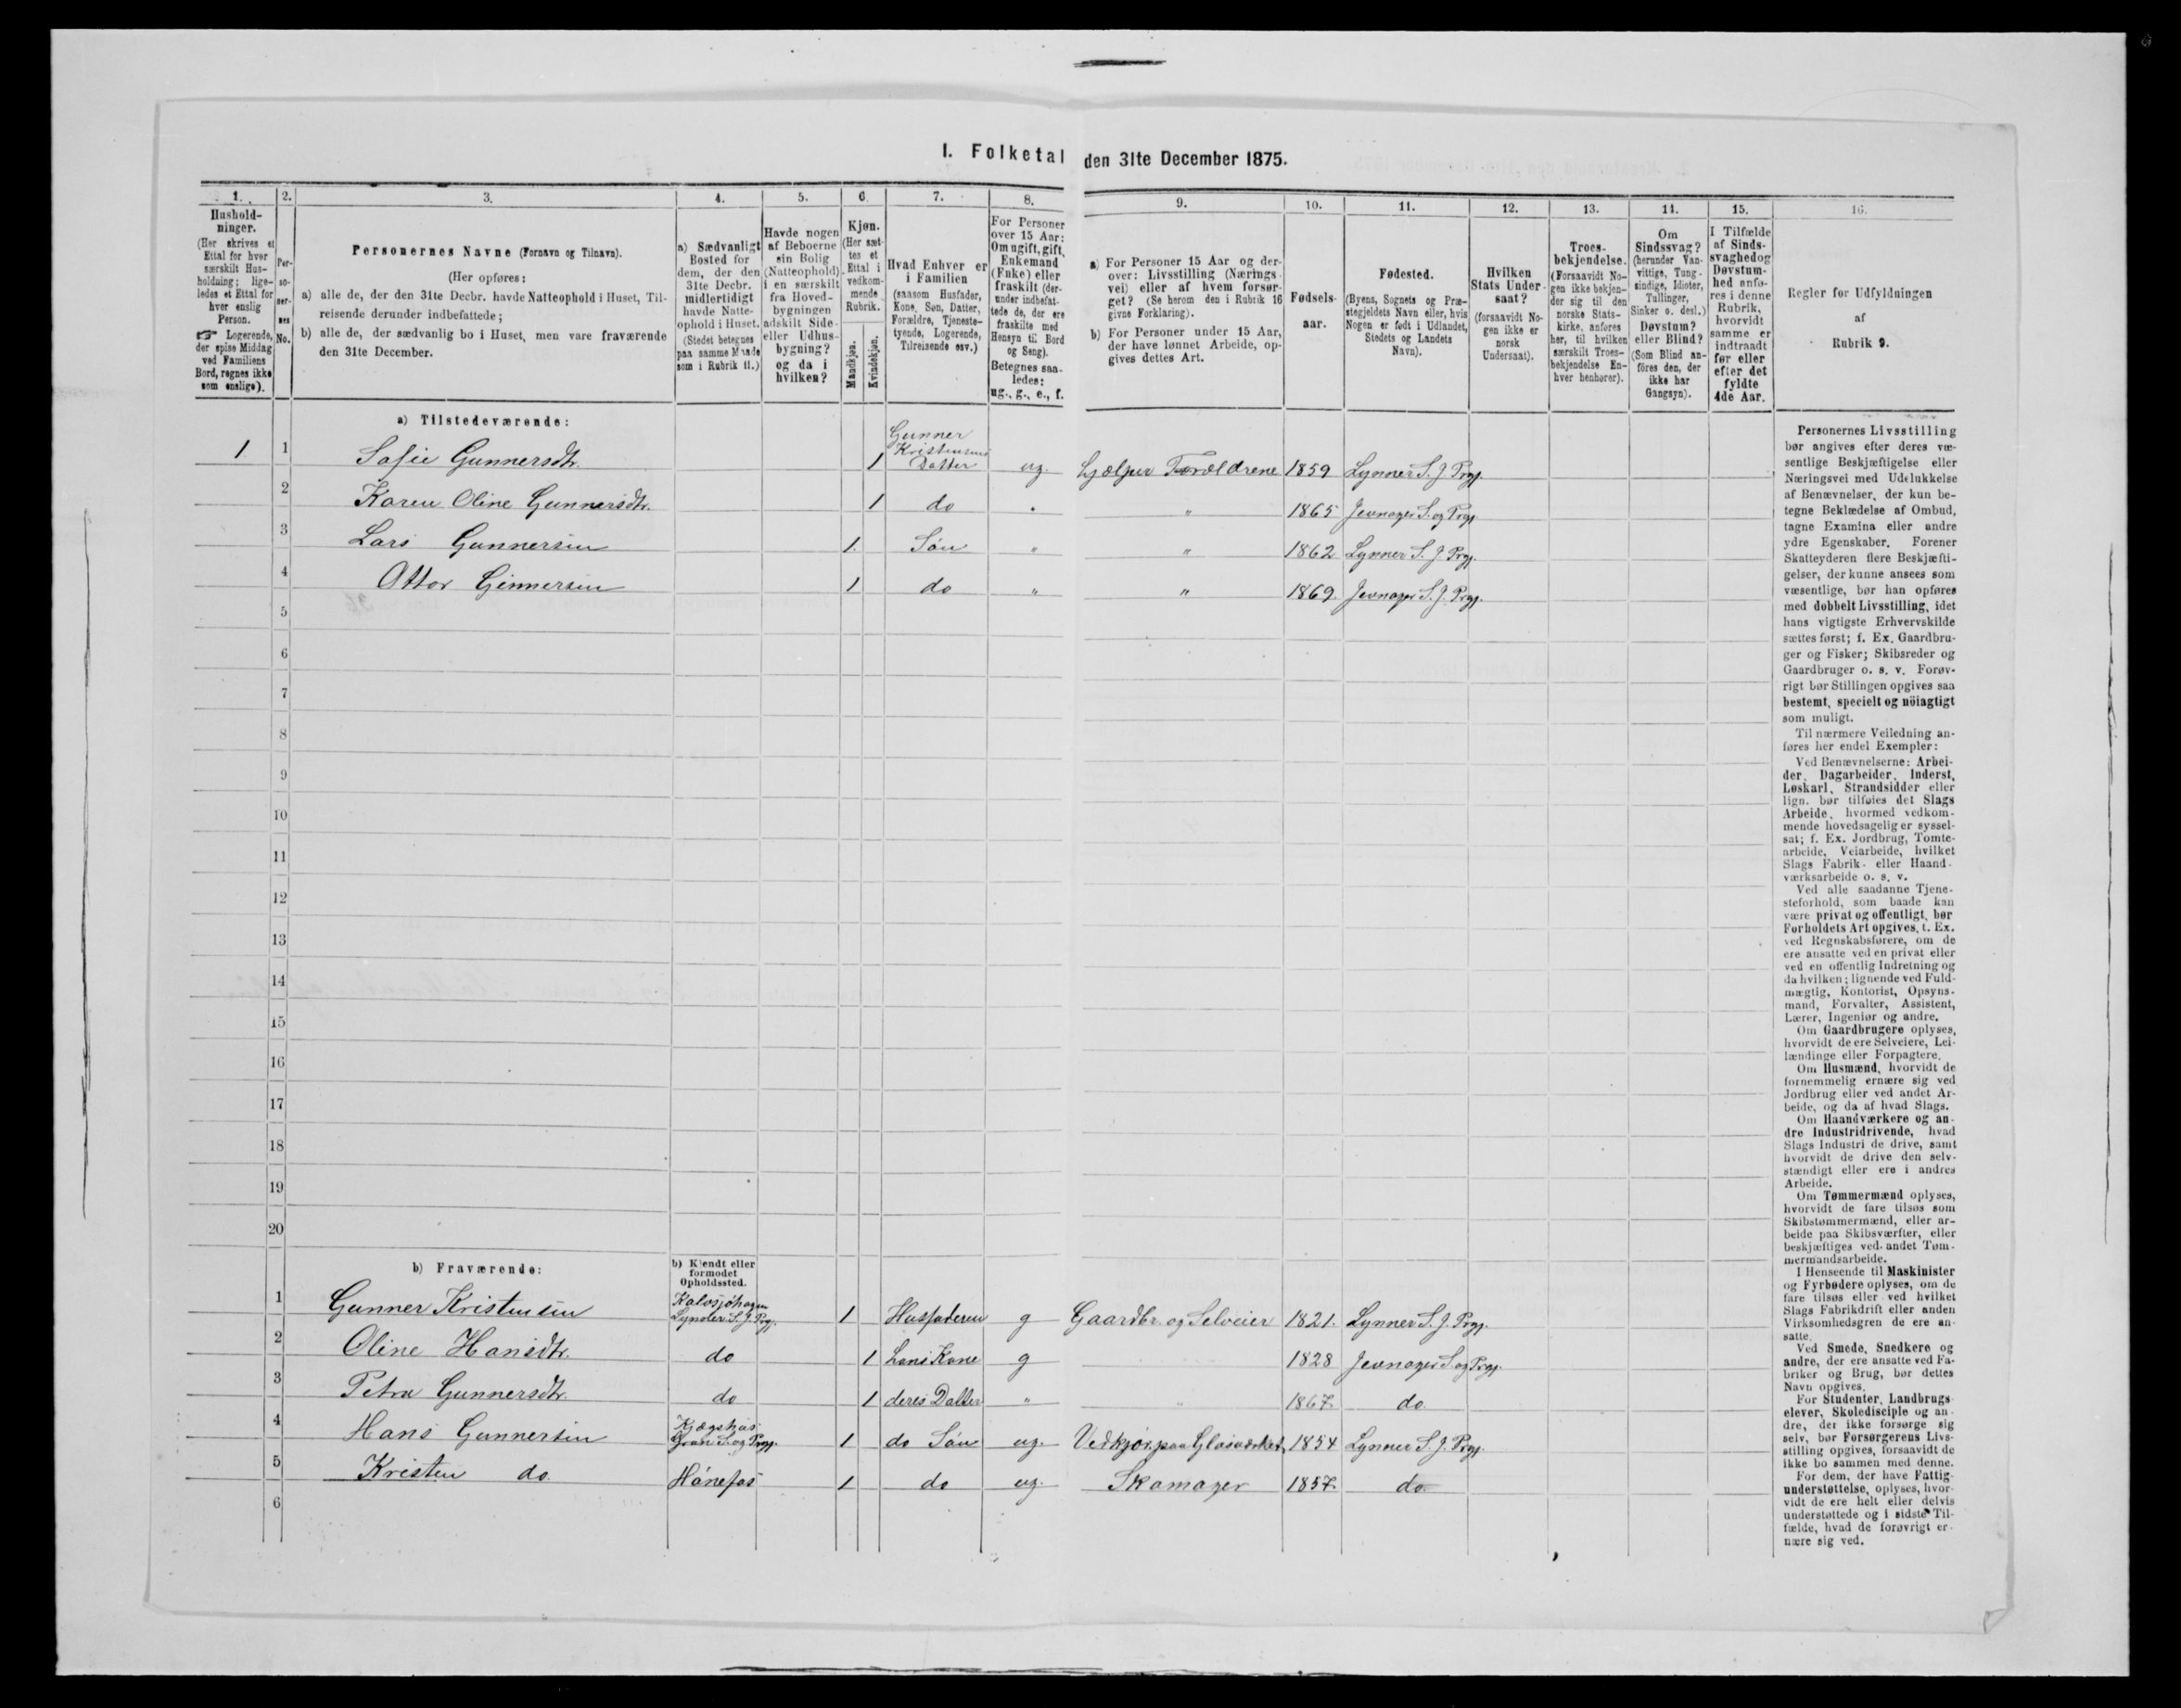 I. Folketal den 31te December 1875.
1. 2. 3. 4. 5. 6. 7. 8. 9. 10. 11. 12. 13. 14. 15. 16.
Hushold-
ninger.
(Her skrives et
Ettal for hver
særskilt Hus-
holdning; lige-
ledes et Ettal for
hver enslig
Person.
☞ Logerende,
der spise Middag
ved Familiens
Bord, regnes ikke
som enslige).
Per-
so-
ner-
nes
No.
Personernes Navne (Fornavn og Tilnavn).
(Her opføres:
a) alle de, der den 31te Decbr. havde Natteophold i Huset, Til-
reisende derunder indbefattede;
b) alle de, der sædvanlig bo i Huset, men vare fraværende
den 31te December.
a) Sædvanligt
Bosted for
dem, der den
31te Decbr.
midlertidigt
havde Natte-
ophold i Huset.
(Stedet betegnes
paa samme Maade
som i Rubrik 11.)
Havde nogen
af Beboerne
sin Bolig
(Natteophold)
i en særskilt
fra Hoved-
bygningen
adskilt Side-
eller Udhus-
bygning?
og da i
hvilken?
Kjøn.
(Her sæt-
tes et
Ettal i
vedkom-
mende
Rubrik.
Mandkjøn.
Kvindekjøn.
Hvad Enhver er
i Familien
(saasom Husfader,
Kone, Søn, Datter,
Forældre, Tjeneste-
tyende, Logerende,
Tilreisende osv.)
For Personer
over 15 Aar:
Om ugift, gift,
Enkemand
(Enke) eller
fraskilt (der-
under indbefat-
tede de, der ere
fraskilte med
Hensyn til Bord
og Seng).
Betegnes saa-
ledes:
ug., g., e., f.
a) For Personer 15 Aar og der-
over: Livsstilling (Nærings-
vei) eller af hvem forsør-
get? (Se herom den i Rubrik 16
givne Forklaring).
b) For Personer under 15 Aar,
der have lønnet Arbeide, op-
gives dettes Art.
Fødsels-
aar.
Fødested.
(Byens, Sognets og Præ-
stegjeldets Navn eller, hvis
Nogen er født i Udlandet,
Stedets og Landets
Navn).
Hvilken
Stats Under-
saat?
(forsaavidt No-
gen ikke er
norsk
Undersaat).
Troes-
bekjendelse.
(Forsaavidt No-
gen ikke bekjen-
der sig til den
norske Stats-
kirke, anføres
her, til hvilken
særskilt Troes-
bekjendelse En-
hver henhører).
Om
Sindssvag?
(herunder Van-
vittige, Tung-
sindige, Idioter,
Tullinger,
Sinker o. desl.)
Døvstum?
eller Blind?
(Som Blind an-
føres den, der
ikke har
Gangsyn).
I Tilfælde
af Sinds-
svaghed og
Døvstum-
hed anfø-
res i denne
Rubrik,
hvorvidt
samme er
indtraadt
før eller
efter det
fyldte
4de Aar.
Regler for Udfyldningen
af
Rubrik 9.
a) Tilstedeværende:
1 1 Sofie Gunnersdtr. 1 Gunner Kristensens Datter ug. hjælper Forældrene 1859 Lynner S. J. Prgj.
2 Karen Oline Gunnersdtr. 1 do " " 1865 Jevnager S. og Prgj.
3 Lars Gunnersen 1. Sön " " 1862 Lynner S. J. Prgj.
4 Ottor Ginnersen 1 do " " 1869. Jevnager S. J. Prgj.
5
6
7
8
9
10
11
12
13
14
15
16
17
18
19
20
b) Fraværende:
b) Kjendt eller
formodet
Opholdssted.
1 Gunner Kristensen Kalvsjöhagen Lynner S. J. Prgj. 1 Husfaderen g Gaardbr. og Selveier 1821. Lynner S. J. Prgj.
2 Oline Hansdtr. do 1 hans Kone g 1828 Jevnager S. og Prgj.
3 Petra Gunnersdtr. do 1 deres Datter " " 1867. do
4 Hans Gunnersen Gran S. og Prgj. 1 do Sön ug. Vedkjör. paa Glasværket 1854 Lynner S. J. Prgj.
5 Kristen do. Hönefos 1 do ug. Skomager 1857. do
6
Personernes Livsstilling
bør angives efter deres væ-
sentlige Beskjæftigelse eller
Næringsvei med Udelukkelse
af Benævnelser, der kun be-
tegne Beklædelse af Ombud,
tagne Examina eller andre
ydre Egenskaber. Forener
Skatteyderen flere Beskjæfti-
gelser, der kunne ansees som
væsentlige, bør han opføres
med dobbelt Livsstilling, idet
hans vigtigste Erhvervskilde
sættes først; f. Ex. Gaardbru-
ger og Fisker; Skibsreder og
Gaardbruger o. s. v. Forøv-
rigt bør Stillingen opgives saa
bestemt, specielt og nöiagtigt
som muligt.
Til nærmere Veiledning an-
føres her endel Exempler:
Ved Benævnelserne: Arbei-
der, Dagarbeider, Inderst,
Løskarl, Strandsidder eller
lign. bør tilføies det Slags
Arbeide, hvormed vedkom-
mende hovedsagelig er syssel-
sat; f. Ex. Jordbrug, Tomte-
arbeide, Veiarbeide, hvilket
Slags Fabrik- eller Haand-
værksarbeide o. s. v.
Ved alle saadanne Tjene-
steforhold, som baade kan
være privat og offentligt, bør
Forholdets Art opgives, t. Ex.
ved Regnskabsførere, om de
ere ansatte ved en privat eller
ved en offentlig Indretning og
da hvilken; lignende ved Fuld-
mægtig, Kontorist, Opsyns-
mand, Forvalter, Assistent,
Lærer, Ingeniør og andre.
Om Gaardbrugere oplyses,
hvorvidt de ere Selveiere, Lei-
lændinge eller Forpagtere.
Om Husmænd, hvorvidt de
fornemmelig ernære sig ved
Jordbrug eller ved andet Ar-
beide, og da af hvad Slags.
Om Haandværkere og an-
dre Industridrivende, hvad
Slags Industri de drive, samt
hvorvidt de drive den selv-
stændigt eller ere i andres
Arbeide.
Om Tømmermænd oplyses,
hvorvidt de fare tilsøs som
Skibstømmermænd, eller ar-
beide paa Skibsværfter, eller
beskjæftiges ved andet Tøm-
mermandsarbeide.
I Henseende til Maskinister
og Fyrbødere oplyses, om de
fare tilsøs eller ved hvilket
Slags Fabrikdrift eller anden
Virksomhedsgren de ere an-
satte.
Ved Smede, Snedkere og
andre, der ere ansatte ved Fa-
briker og Brug, bør dettes
Navn opgives.
For Studenter, Landbrugs-
elever, Skoledisciple og an-
dre, der ikke forsørge sig
selv, bør Forsørgerens Livs-
stilling opgives, forsaavidt de
ikke bo sammen med denne.
For dem, der have Fattig-
understøttelse, oplyses, hvor-
vidt de ere helt eller delvis
understøttede og i sidste Til-
fælde, hvad de forøvrigt er-
nære sig ved.